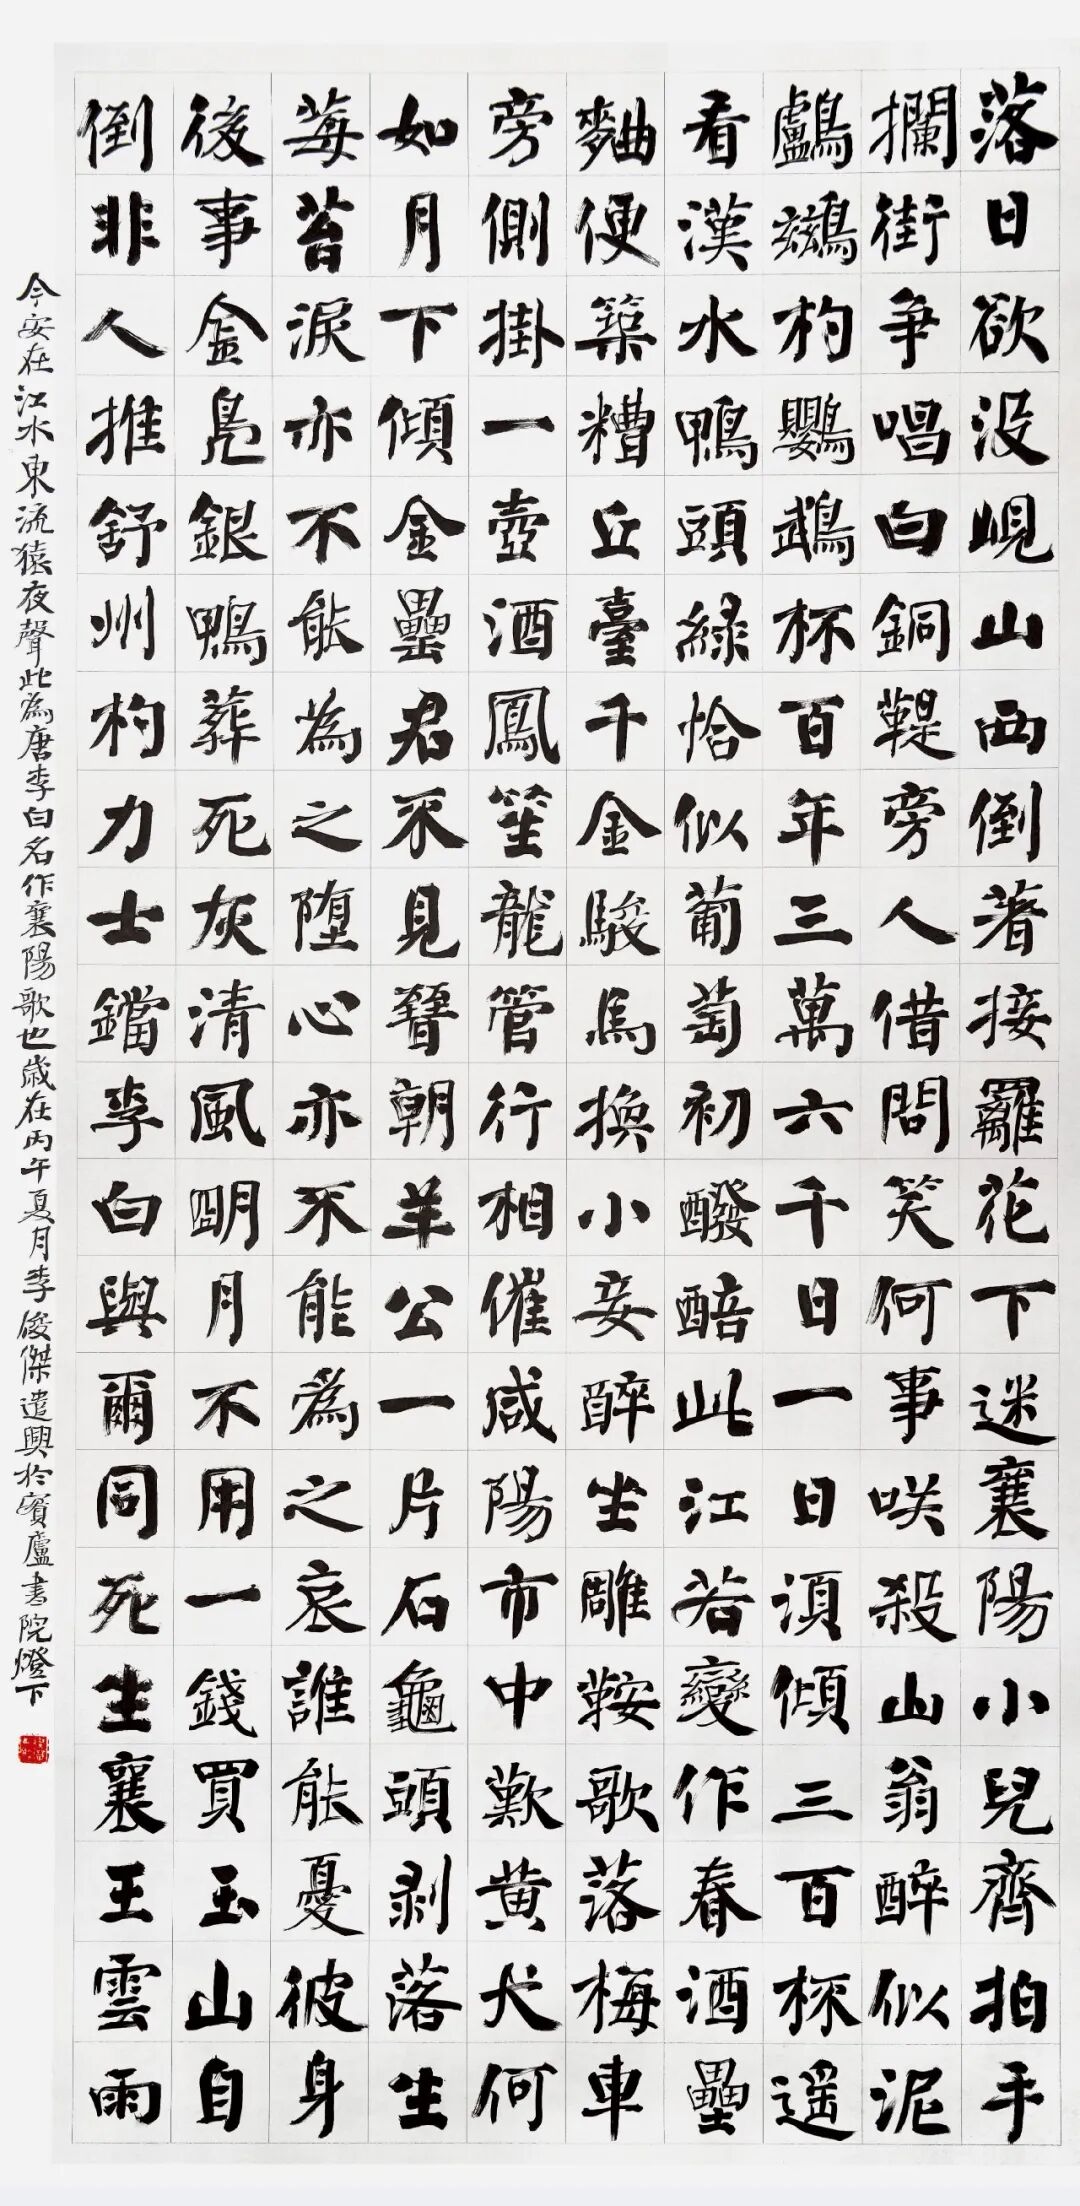 落日欲没峴山西倒著接䍦花下迷襄陽小兒齊拍手
攔街爭唱白銅鞮旁人借問笑何事笑殺山翁醉似泥
鸕鶿杓鸚鵡杯百年三萬六千日一日須傾三百杯遥
看漢水鴨頭綠恰似葡萄初醱醅此江若變作春酒壘
麯便築糟丘臺千金駿馬換小妾醉坐雕鞍歌落梅車
旁側掛一壺酒鳳笙龍管行相催咸陽市中歎黄犬何
如月下傾金罍君不見晉朝羊公一片石龜頭剥落生
莓苔淚亦不能為之墮心亦不能為之哀誰能憂彼身
後事金鳧銀鴨葬死灰清風朙月不用一錢買玉山自
倒非人推舒州杓力士鐺李白與爾同死生襄王雲雨
今安在江水東流猿夜聲此為唐李白名作襄陽歌也歲在丙午夏月李俊傑遣興於賓廬書院燈下